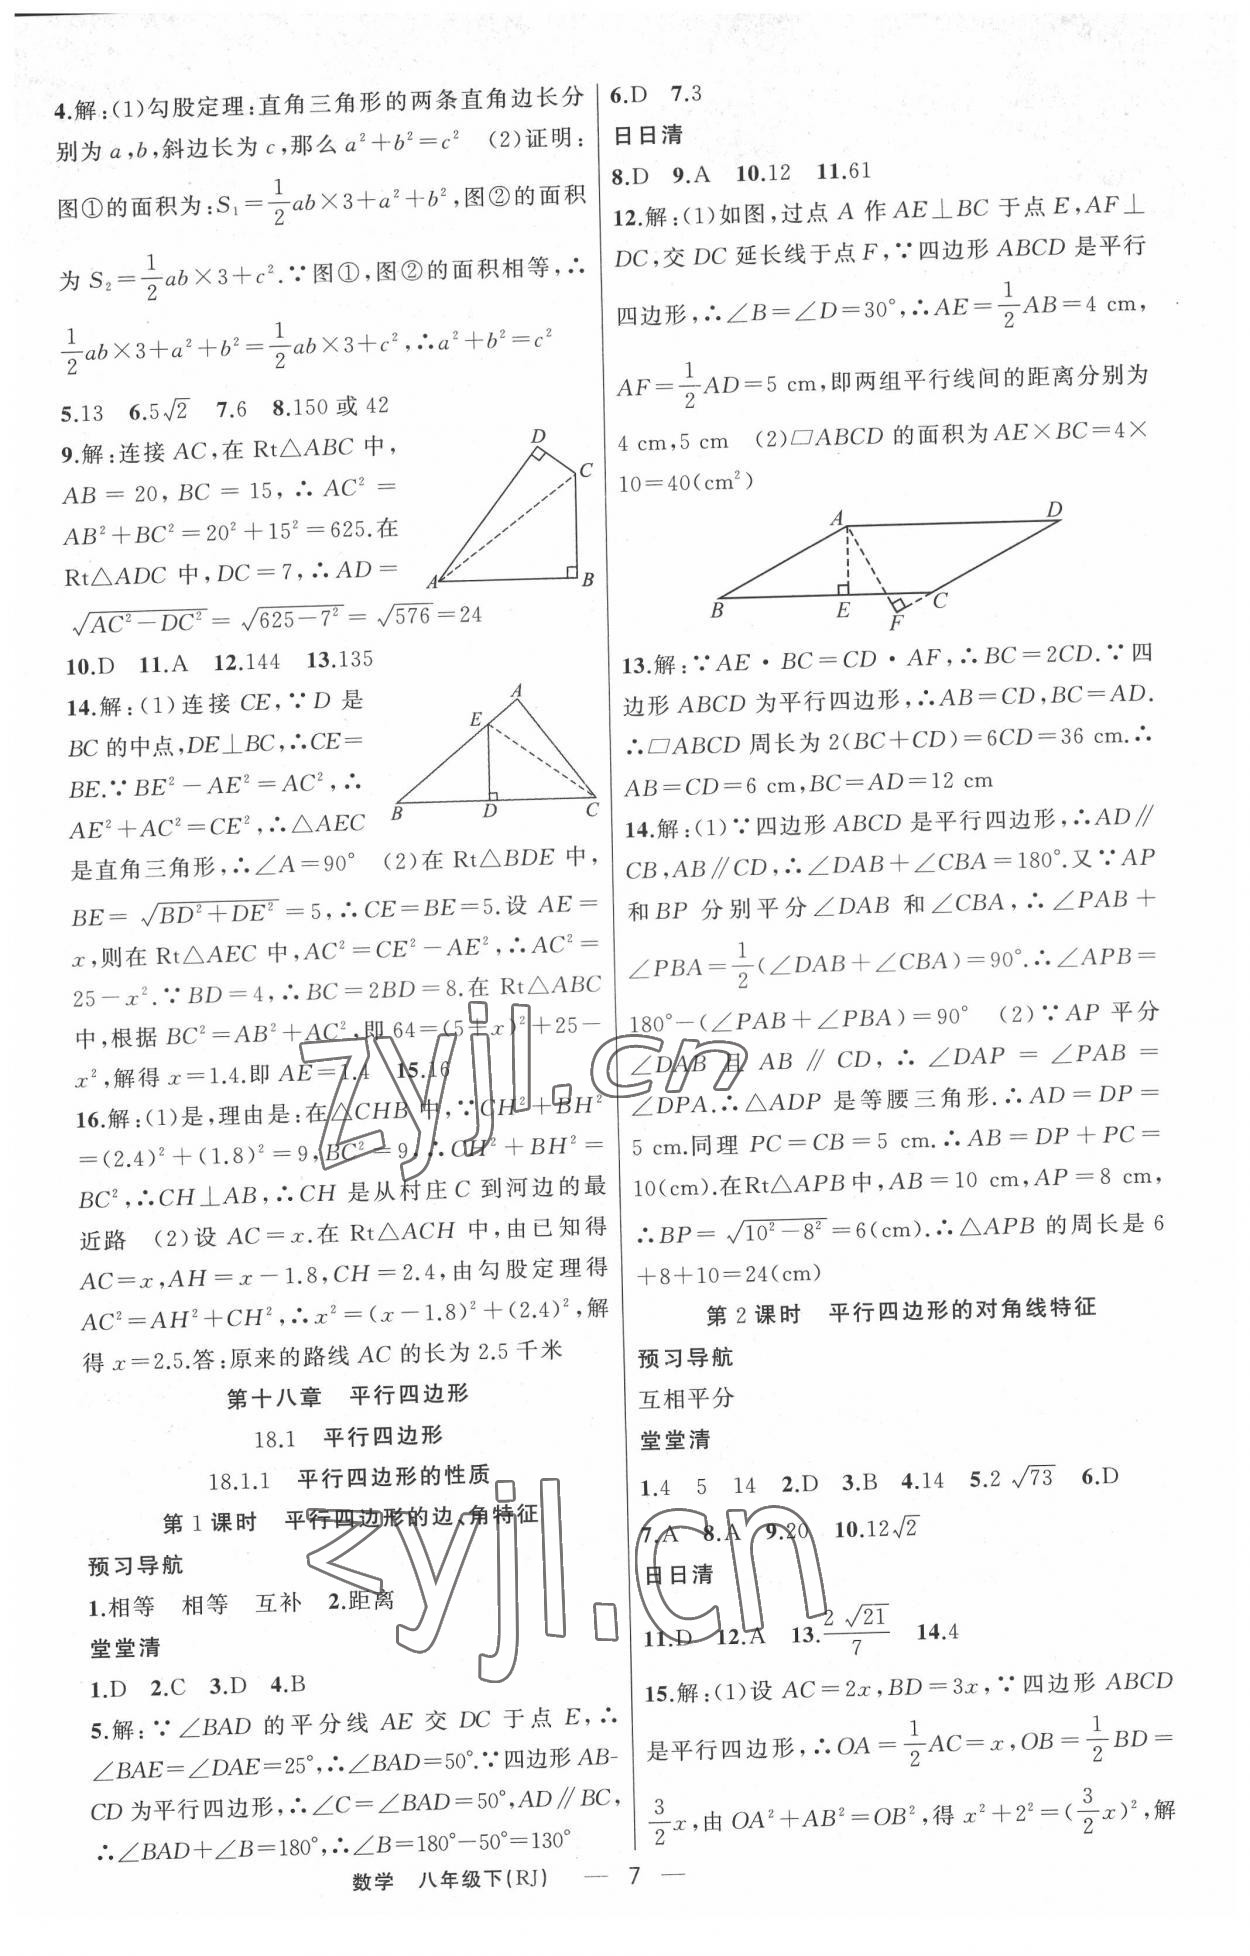 4.解:(1)勾股定理:直角三角形的两条直角边长分
别为 a,b,斜边长为 c,那么 a²+b²=c² (2)证明:
图①的面积为:S₁=1/2ab×3+a²+b²,图②的面积
为 S₂=1/2ab×3+c².∵图①,图②的面积相等,∴
1/2ab×3+a²+b²=1/2ab×3+c²,∴a²+b²=c²
5.13 6.5√2 7.6 8.150 或 42
9.解:连接 AC,在 Rt△ABC 中,
AB = 20, BC = 15, ∴ AC² =
AB²+BC²=20²+15²=625.在
Rt△ADC 中,DC=7,∴AD=
√(AC²-DC²) = √(625-7²) = √576=24
D
C
A
B
10.D 11.A 12.144 13.135
14.解:(1)连接 CE,∵D 是
BC 的中点,DE⊥BC,∴CE=
BE.∵BE²-AE²=AC²,∴
AE²+AC²=CE²,∴△AEC
A
E
B
D
C
是直角三角形,∴∠A=90° (2)在 Rt△BDE 中,
BE= √(BD²+DE²) =5,∴CE=BE=5.设 AE=
x,则在 Rt△AEC 中,AC²=CE²-AE²,∴AC²=
25-x².∵BD=4,∴BC=2BD=8.在 Rt△ABC
中,根据 BC²=AB²+AC²,即 64=(5+x)²+25-
x²,解得 x=1.4.即 AE=1.4 15.16
16.解:(1)是,理由是:在△CHB 中,∵CH²+BH²
=(2.4)²+(1.8)²=9,BC²=9,∴CH²+BH²=
BC²,∴CH⊥AB,∴CH 是从村庄 C 到河边的最
近路 (2)设 AC=x.在 Rt△ACH 中,由已知得
AC=x,AH=x-1.8,CH=2.4,由勾股定理得
AC²=AH²+CH²,∴x²=(x-1.8)²+(2.4)²,解
得 x=2.5.答:原来的路线 AC 的长为 2.5 千米
第十八章 平行四边形
18.1 平行四边形
18.1.1 平行四边形的性质
第 1 课时 平行四边形的边、角特征
预习导航
1.相等 相等 互补 2.距离
堂堂清
1.D 2.C 3.D 4.B
5.解:∵∠BAD 的平分线 AE 交 DC 于点 E,∴
∠BAE=∠DAE=25°,∴∠BAD=50°.∵四边形 AB-
CD 为平行四边形,∴∠C=∠BAD=50°,AD∥BC,
∴∠BAD+∠B=180°,∴∠B=180°-50°=130°
6.D 7.3
日日清
8.D 9.A 10.12 11.61
12.解:(1)如图,过点 A 作 AE⊥BC 于点 E,AF⊥
DC,交 DC 延长线于点 F,∵四边形 ABCD 是平行
四边形,∴∠B=∠D=30°,∴AE=1/2AB=4 cm,
AF=1/2AD=5 cm,即两组平行线间的距离分别为
4 cm,5 cm (2)□ABCD 的面积为AE×BC=4×
10=40(cm²)
A
D
B
E
F
C
13.解:∵AE·BC=CD·AF,∴BC=2CD.∵四
边形 ABCD 为平行四边形,∴AB=CD,BC=AD.
∴□ABCD 周长为 2(BC+CD)=6CD=36 cm.∴
AB=CD=6 cm,BC=AD=12 cm
14.解:(1)∵四边形 ABCD 是平行四边形,∴AD∥
CB,AB∥CD,∴∠DAB+∠CBA=180°.又∵AP
和 BP 分别平分∠DAB 和∠CBA,∴∠PAB+
∠PBA=1/2(∠DAB+∠CBA)=90°.∴∠APB=
180°-(∠PAB+∠PBA)=90° (2)∵AP 平分
∠DAB 且 AB∥CD,∴∠DAP=∠PAB=
∠DPA.∴△ADP 是等腰三角形.∴AD=DP=
5 cm.同理 PC=CB=5 cm.∴AB=DP+PC=
10(cm).在Rt△APB中,AB=10 cm,AP=8 cm,
∴BP= √(10²-8²) =6(cm).∴△APB 的周长是 6
+8+10=24(cm)
第 2 课时 平行四边形的对角线特征
预习导航
互相平分
堂堂清
1.4 5 14 2.D 3.B 4.14 5.2 √73 6.D
7.A 8.A 9.20 10.12√2
日日清
11.D 12.A 13.2√21/7 14.4
15.解:(1)设 AC=2x,BD=3x,∵四边形 ABCD
是平行四边形,∴OA=1/2AC=x,OB=1/2BD=
3/2x,由 OA²+AB²=OB²,得 x²+2²=(3/2x)²,解
数学 八年级下(RJ) — 7 —
zyjl.cn
zyjl.cn